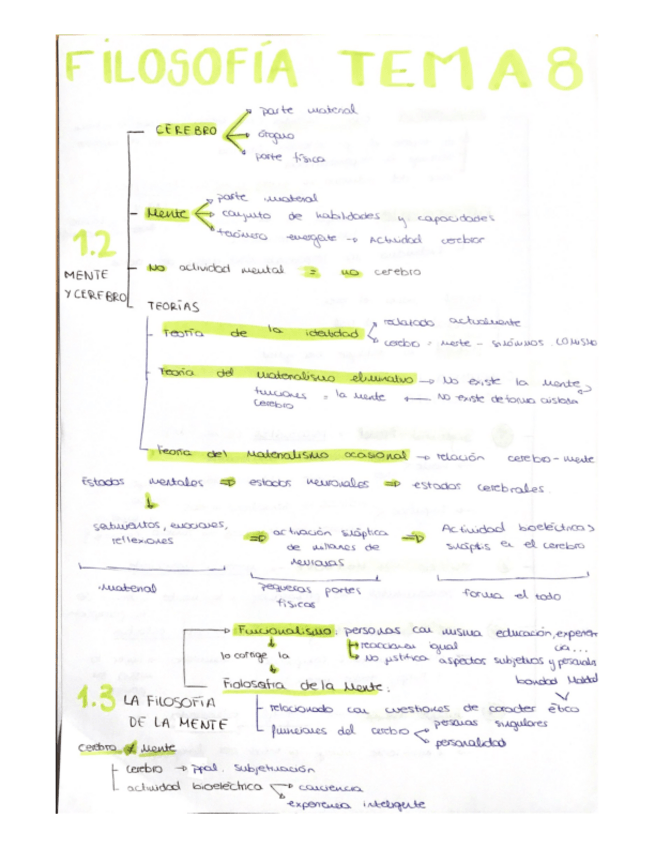 FILOSOFÍA TEMA 8
CEREBRO
parte material
órgano
parte física
Mente
parte material
conjunto de habilidades y capacidades
emergente → Actividad cerebral
1.2
MENTE
Y CEREBRO
No actividad mental = no cerebro
TEORÍAS
Teoría de la identidad
actualmente
cerebro = mente - sinónimos. CONISMO
Teoría del materialismo eliminativo → No existe la mente
funciones = la mente ← NO existe de forma aislada
cerebro
Teoría del Materialismo ocasional → relación cerebro-mente
Estados mentales ⇒ estados neuronales ⇒ estados cerebrales.
sentimientos, emociones,
reflexiones
⇒ activación sináptica
de millones de
neuronas
⇒ Actividad bioeléctrica
sinapsis en el cerebro
material
pequeñas partes
físicas
forma el todo
Funcionalismo: personas con misma educación, experien
cia...
reaccionan igual
lo corrige la
No justifica aspectos subjetivos y personales
bondad Maldad
Fiolosofía de la Mente:
1.3 LA FILOSOFÍA
DE LA MENTE
relacionado con cuestiones de caracter ético
funciones del cerebro
personas singulares
personalidad
cerebro ≠ Mente
cerebro → ppal. subjetivación
actividad bioeléctrica
conciencia
experiencia inteligente